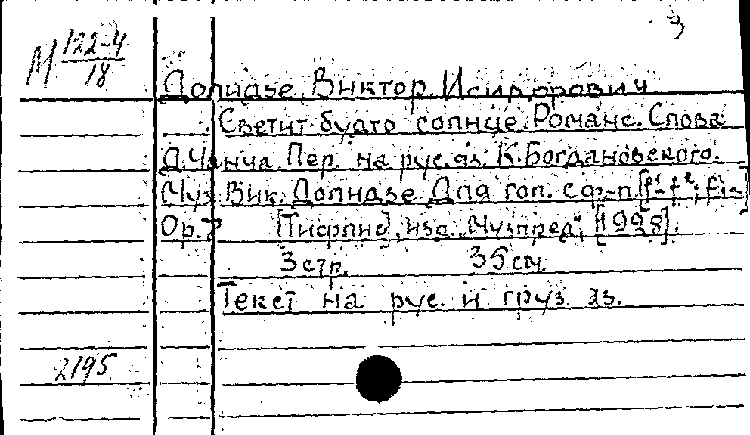 М 122-4/18
Долидзе, Виктор Исидорович
Светит будто солнце. Романс. Слова
Д. Чанча. Пер. на рус. яз. К. Богдановского.
Муз. Вик. Долидзе. Для гол. с ф-п.
Ор. 7 [Тифлис], изд. "Музпред", [1928].
3 стр. 35 см.
Текст на рус. и груз. яз.
2195